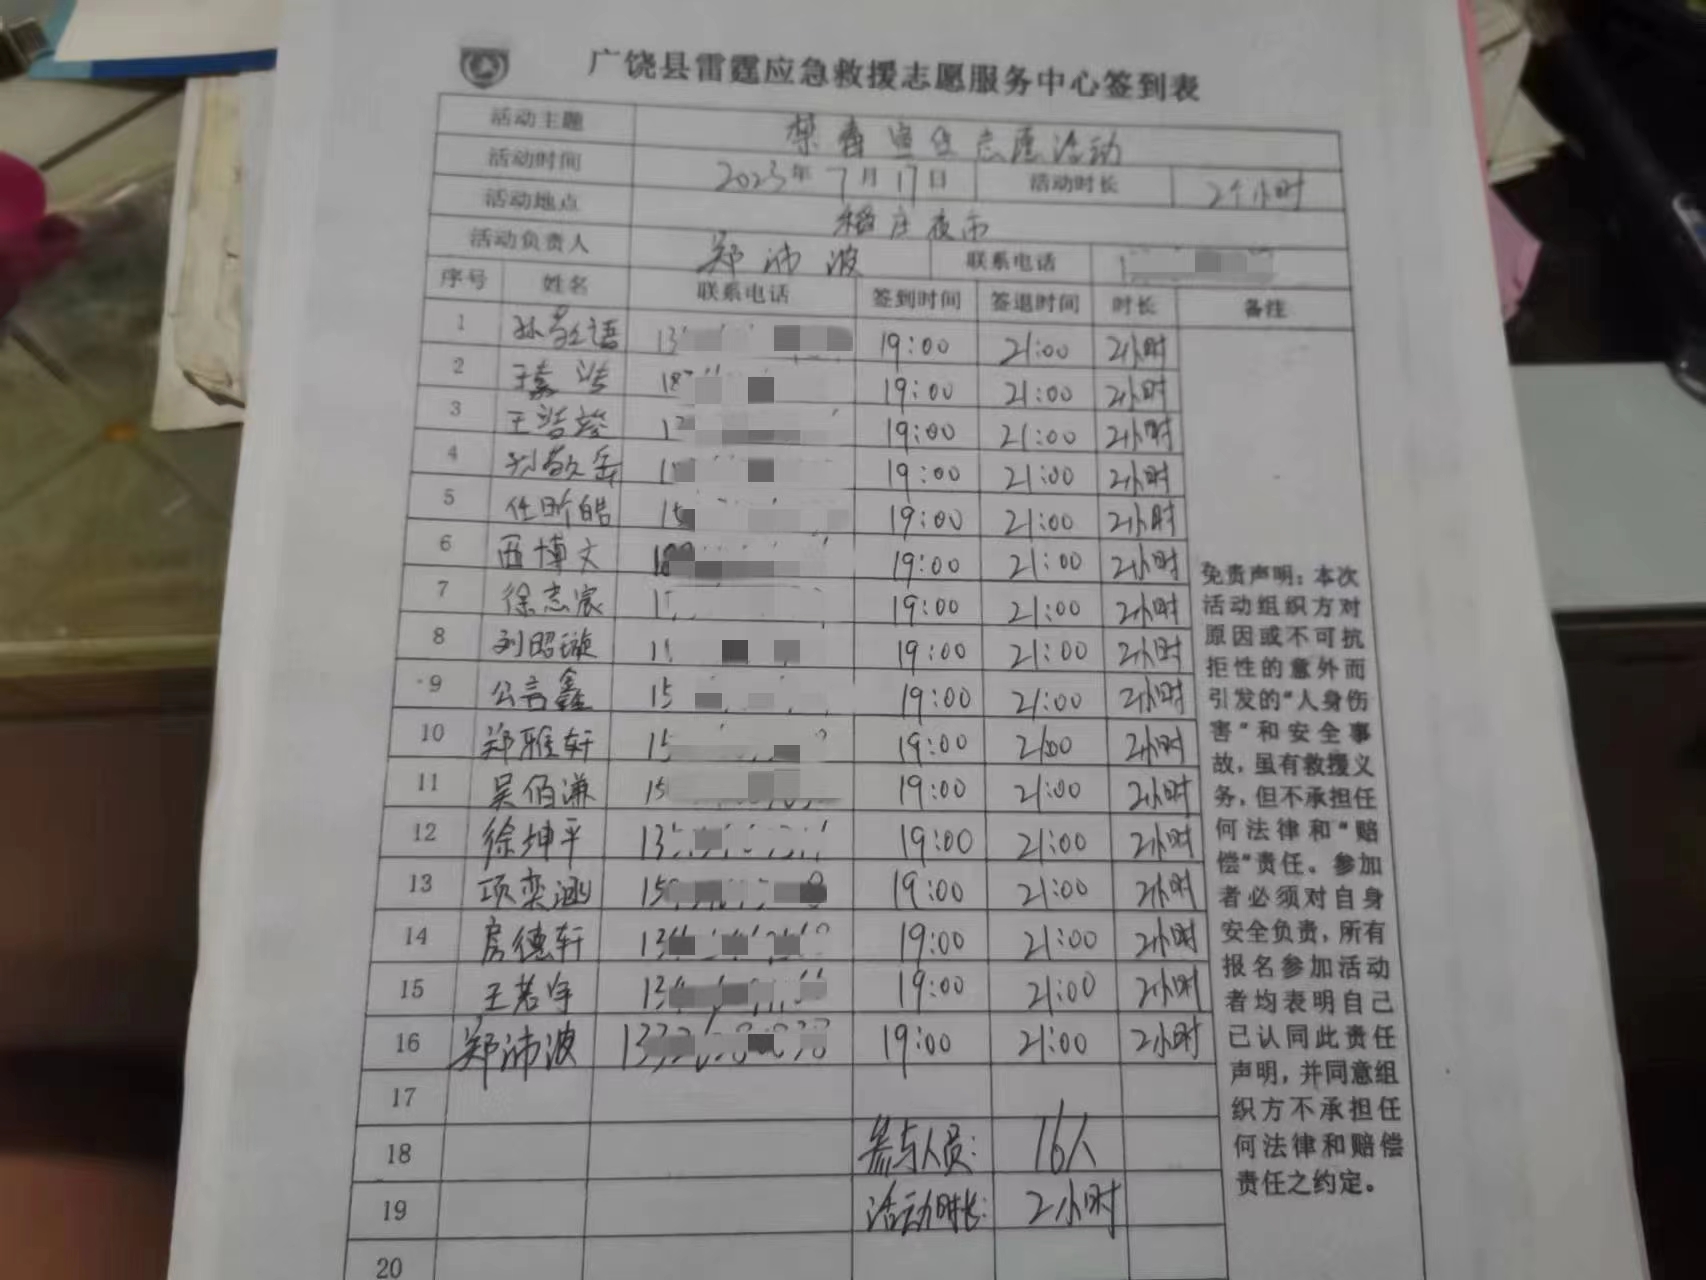 广饶县雷霆应急救援志愿服务中心签到表
活动主题 禁毒宣传志愿活动
活动时间 2023年7月17日 活动时长 2个小时
活动地点 稻庄夜市
活动负责人 郑沛波 联系电话
序号 姓名 联系电话 签到时间 签退时间 时长 备注
1 19:00 21:00 2小时
2 19:00 21:00 2小时
3 19:00 21:00 2小时
4 19:00 21:00 2小时
5 任昕皓 15 19:00 21:00 2小时
6 西博文 19:00 21:00 2小时
7 徐志宸 19:00 21:00 2小时
8 刘昭璇 19:00 21:00 2小时
9 公言鑫 15 19:00 21:00 2小时
10 郑雅轩 15 19:00 21:00 2小时
11 吴佰谦 15 19:00 21:00 2小时
12 徐坤平 13 19:00 21:00 2小时
13 项奕涵 15 19:00 21:00 2小时
14 房德轩 13 19:00 21:00 2小时
15 王若宇 13 19:00 21:00 2小时
16 郑沛波 19:00 21:00 2小时
17
18 参与人员: 16人
19 活动时长: 2小时
20
免责声明：本次
活动组织方对
原因或不可抗
拒性的意外而
引发的“人身伤
害”和安全事
故，虽有救援义
务，但不承担任
何法律和“赔
偿”责任。参加
者必须对自身
安全负责，所有
报名参加活动
者均表明自己
已认同此责任
声明，并同意组
织方不承担任
何法律和赔偿
责任之约定。